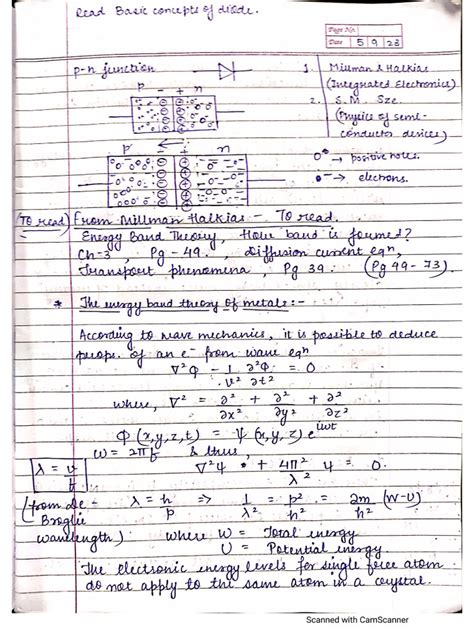 Read Basic concepts of diode.
Page No.
Date 5 9 23
p-n junction
1. Millman & Halkias
(Integrated Electronics)
2. S.M. Sze
(Physics of semi-
conductor devices)
p - + n
p ← n
0⁺ → positive holes.
0⁻ → electrons.
(To read) From Millman Halkias - To read.
Energy Band Theory, How band is formed?
Ch-3, Pg - 49, diffusion current eqⁿ,
Transport phenomena, Pg 39. (Pg 49-73)
* The energy band theory of metals:-
According to wave mechanics, it is possible to deduce
props. of an e⁻ from wave eqⁿ
∇²Φ - 1/v² ∂²Φ/∂t² = 0
where, ∇² = ∂²/∂x² + ∂²/∂y² + ∂²/∂z²
Φ(x,y,z,t) = Ψ(x,y,z) e^iωt
ω = 2πf & thus,
∇²Ψ + 4π²/λ² Ψ = 0.
λ = v/f
(from de-Broglie wavelength)
λ = h/p => 1/λ² = p²/h² = 2m/h² (W-U)
where W = Total energy
U = Potential energy
The electronic energy levels for single free atom
do not apply to the same atom in a crystal.
Scanned with CamScanner